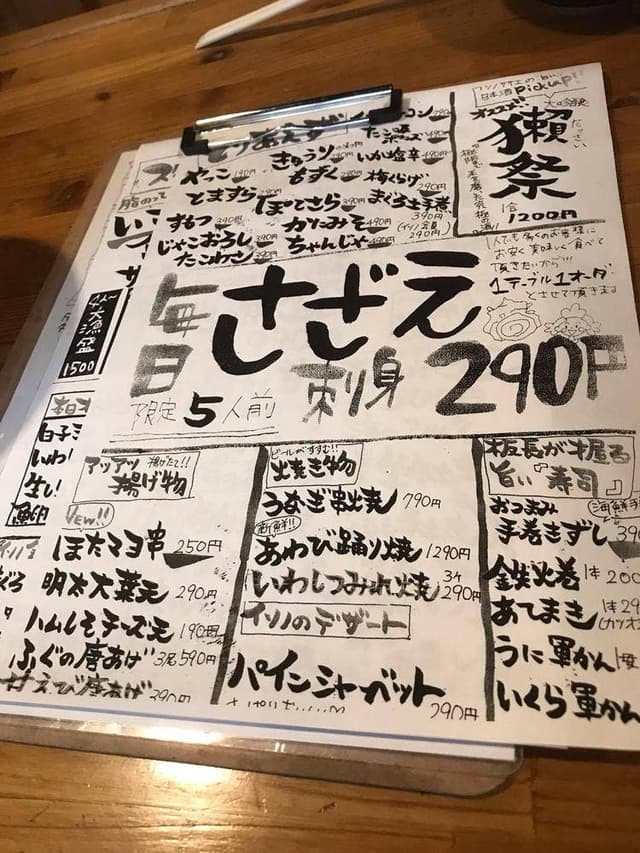 とりあえず
やっこ 190円
きゅうり
いか塩辛 490円
とますら 390円
もずく
梅くらげ 290円
すもつ 390円
ぽてさら 390円
まぐろ土手煮 390円
じゃこおろし 390円
かにみそ 490円
たこわさ
ちゃんじゃ 490円
日本酒 Pick up!!
オススメ!!
獺祭
だっさい
1合
1200円
毎日
さざえ
刺身
290円
限定5人前
1人でも多くのお客様に
お安く美味しく食べて
頂きたいから!!!
1テーブル1オーダー
とさせて頂きます
大漁盛
1500
本日
白子
いわし
生し
アツアツ 揚げたて!!
揚げ物
NEW!!
ほたマヨ串 250円
明太大葉天 290円
ハムしそチーズ天 190円
ふぐの唐あげ 3尾590円
甘えび唐あげ 390円
ビールがすすむ!!
出焼き物
うなぎ串焼 790円
新鮮!!
あわび踊り焼 1290円
いわしつみれ焼 3ケ 290円
イソノのデザート
パインシャーベット
290円
板長が握る
旨い『寿司』
おつまみ
手巻きずし 390
鉄火巻 1本 200
あてまき 1本 29
(カツオ
うに軍かん
いくら軍かん